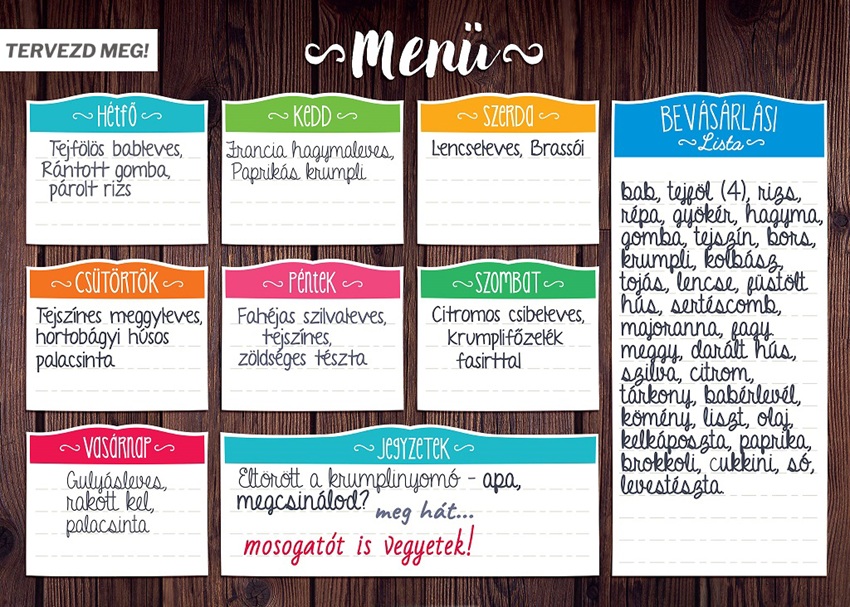 TERVEZD MEG!
Menü
HÉTFŐ
Tejfölös bableves,
Rántott gomba,
párolt rizs
KEDD
Francia hagymaleves,
Paprikás krumpli
SZERDA
Lencseleves, Brassói
CSÜTÖRTÖK
Tejszínes meggyleves,
hortobágyi húsos
palacsinta
PÉNTEK
Fahéjas szilvaleves,
tejszínes,
zöldséges tészta
SZOMBAT
Citromos csibeleves,
krumplifőzelék
fasírttal
VASÁRNAP
Gulyásleves,
rakott kel,
palacsinta
JEGYZETEK
Eltörött a krumplinyomó - apa,
megcsinálod?
meg hát...
mosogatót is vegyetek!
BEVÁSÁRLÁSI
Lista
bab, tejföl (4), rizs,
répa, gyökér, hagyma,
gomba, tejszín, bors,
krumpli, kolbász,
tojás, lencse, füstölt
hús, sertéscomb,
majoranna, fagy
meggy, darált hús,
szilva, citrom,
tárkony, babérlevél,
kömény, liszt, olaj,
kelkáposzta, paprika,
brokkoli, cukkini, só,
levestészta